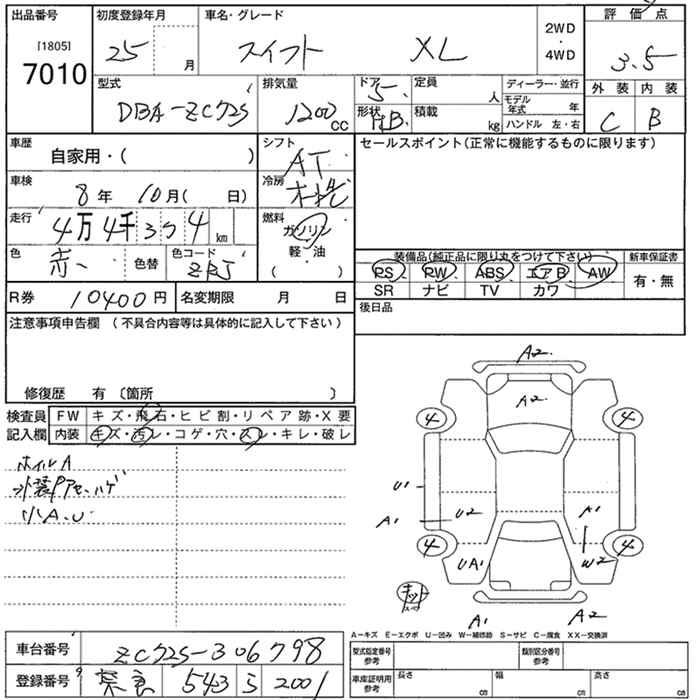 出品番号 初度登録年月 車名・グレード 2WD・4WD 評価点
[1805]
7010 25 月 スイフト XL 3.5
型式 排気量 ドア 定員 ディーラー・並行 外装 内装
DBA-ZC72S 1200cc 5 人 モデル年式 年 C B
形状 HB 積載 kg ハンドル 左・右
車歴 自家用・( ) シフト AT セールスポイント(正常に機能するものに限ります)
車検 8年 10月( 日) 冷房
走行 4万4千394km 燃料 ガソリン
色 赤 色替 色コード ZRJ 軽・油 ( )
装備品(純正品に限り丸をつけて下さい) 新車保証書
PS PW ABS エアB AW 有・無
SR ナビ TV カワ
R券 10400円 名変期限 月 日 後日品
注意事項申告欄 (不具合内容等は具体的に記入して下さい)
修復歴 有 〔箇所 〕
検査員記入欄 FW キズ・飛石・ヒビ割・リペア跡・X要
内装 キズ・汚レ・コゲ・穴・スレ・キレ・破レ
ホイルA
外装Pアセ、ハゲ
小A、U
A2
A2
4 4
U1
A1 U2 A1
4 4
UA1 W2
キット
A1 A2
A-キズ E-エクボ U-凹み W-補修跡 S-サビ C-腐食 XX-交換済
車台番号 ZC72S-306798 型式指定番号 参考 類別区分番号 参考
登録番号 奈良 543 2001 車庫証明用 参考 長さ cm 幅 cm 高さ cm